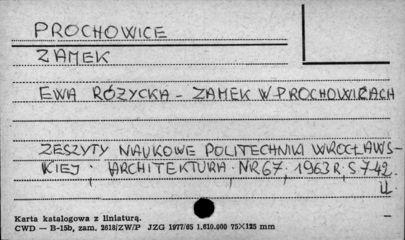 PROCHOWICE
ZAMEK
EWA RÓZYCKA - ZAMEK W PROCHOWICACH
ZESZYTY NAUKOWE POLITECHNIKI WROCŁAWS-
KIEJ. ARCHITEKTURA. NR 67. 1963 R. S 7-42.
Karta katalogowa z liniaturą.
CWD — B-15b, zam. 2618/ZW/P JZG 1977/65 1.610.000 75×125 mm